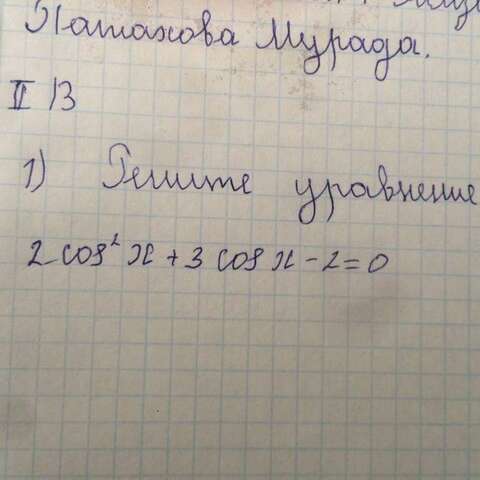 Патахова Мурада.
II В
1) Решите уравнение
2 cos² x + 3 cos x - 2 = 0